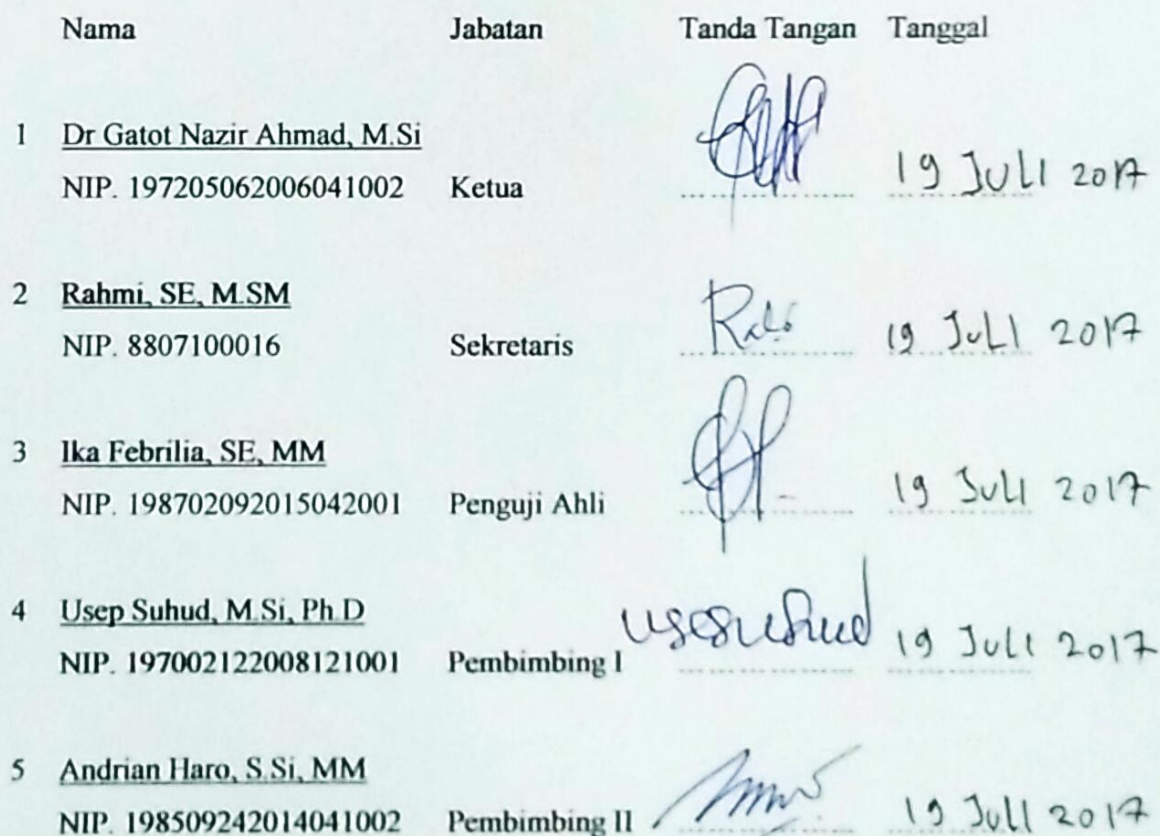 Nama Jabatan Tanda Tangan Tanggal
1 Dr Gatot Nazir Ahmad, M.Si
NIP. 197205062006041002 Ketua 19 JULI 2017
2 Rahmi, SE, M.SM
NIP. 8807100016 Sekretaris 19 JULI 2017
3 Ika Febrilia, SE, MM
NIP. 198702092015042001 Penguji Ahli 19 JULI 2017
4 Usep Suhud, M.Si, Ph.D
NIP. 197002122008121001 Pembimbing I 19 JULI 2017
5 Andrian Haro, S.Si, MM
NIP. 198509242014041002 Pembimbing II 19 JULI 2017